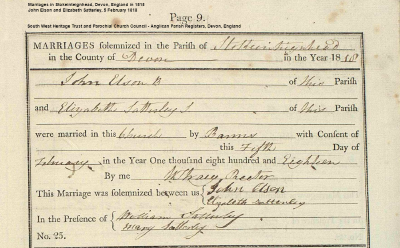 Marriages in Stokeinteignhead, Devon, England in 1818
John Elson and Elizabeth Satterley, 5 February 1818
South West Heritage Trust and Parochial Church Council - Anglican Parish Registers, Devon, England
Page 9.
MARRIAGES solemnized in the Parish of Stokeinteignhead
in the County of Devon in the Year 1818
John Elson B of this Parish
and Elizabeth Satterley S of this Parish
were married in this Church by Banns with Consent of
this Fifth Day of
February in the Year One thousand eight hundred and Eighteen
By me Rector
This Marriage was solemnized between us John Elson
Elizabeth Satterley
In the Presence of William Satterley
Mary Satterley
No. 25.